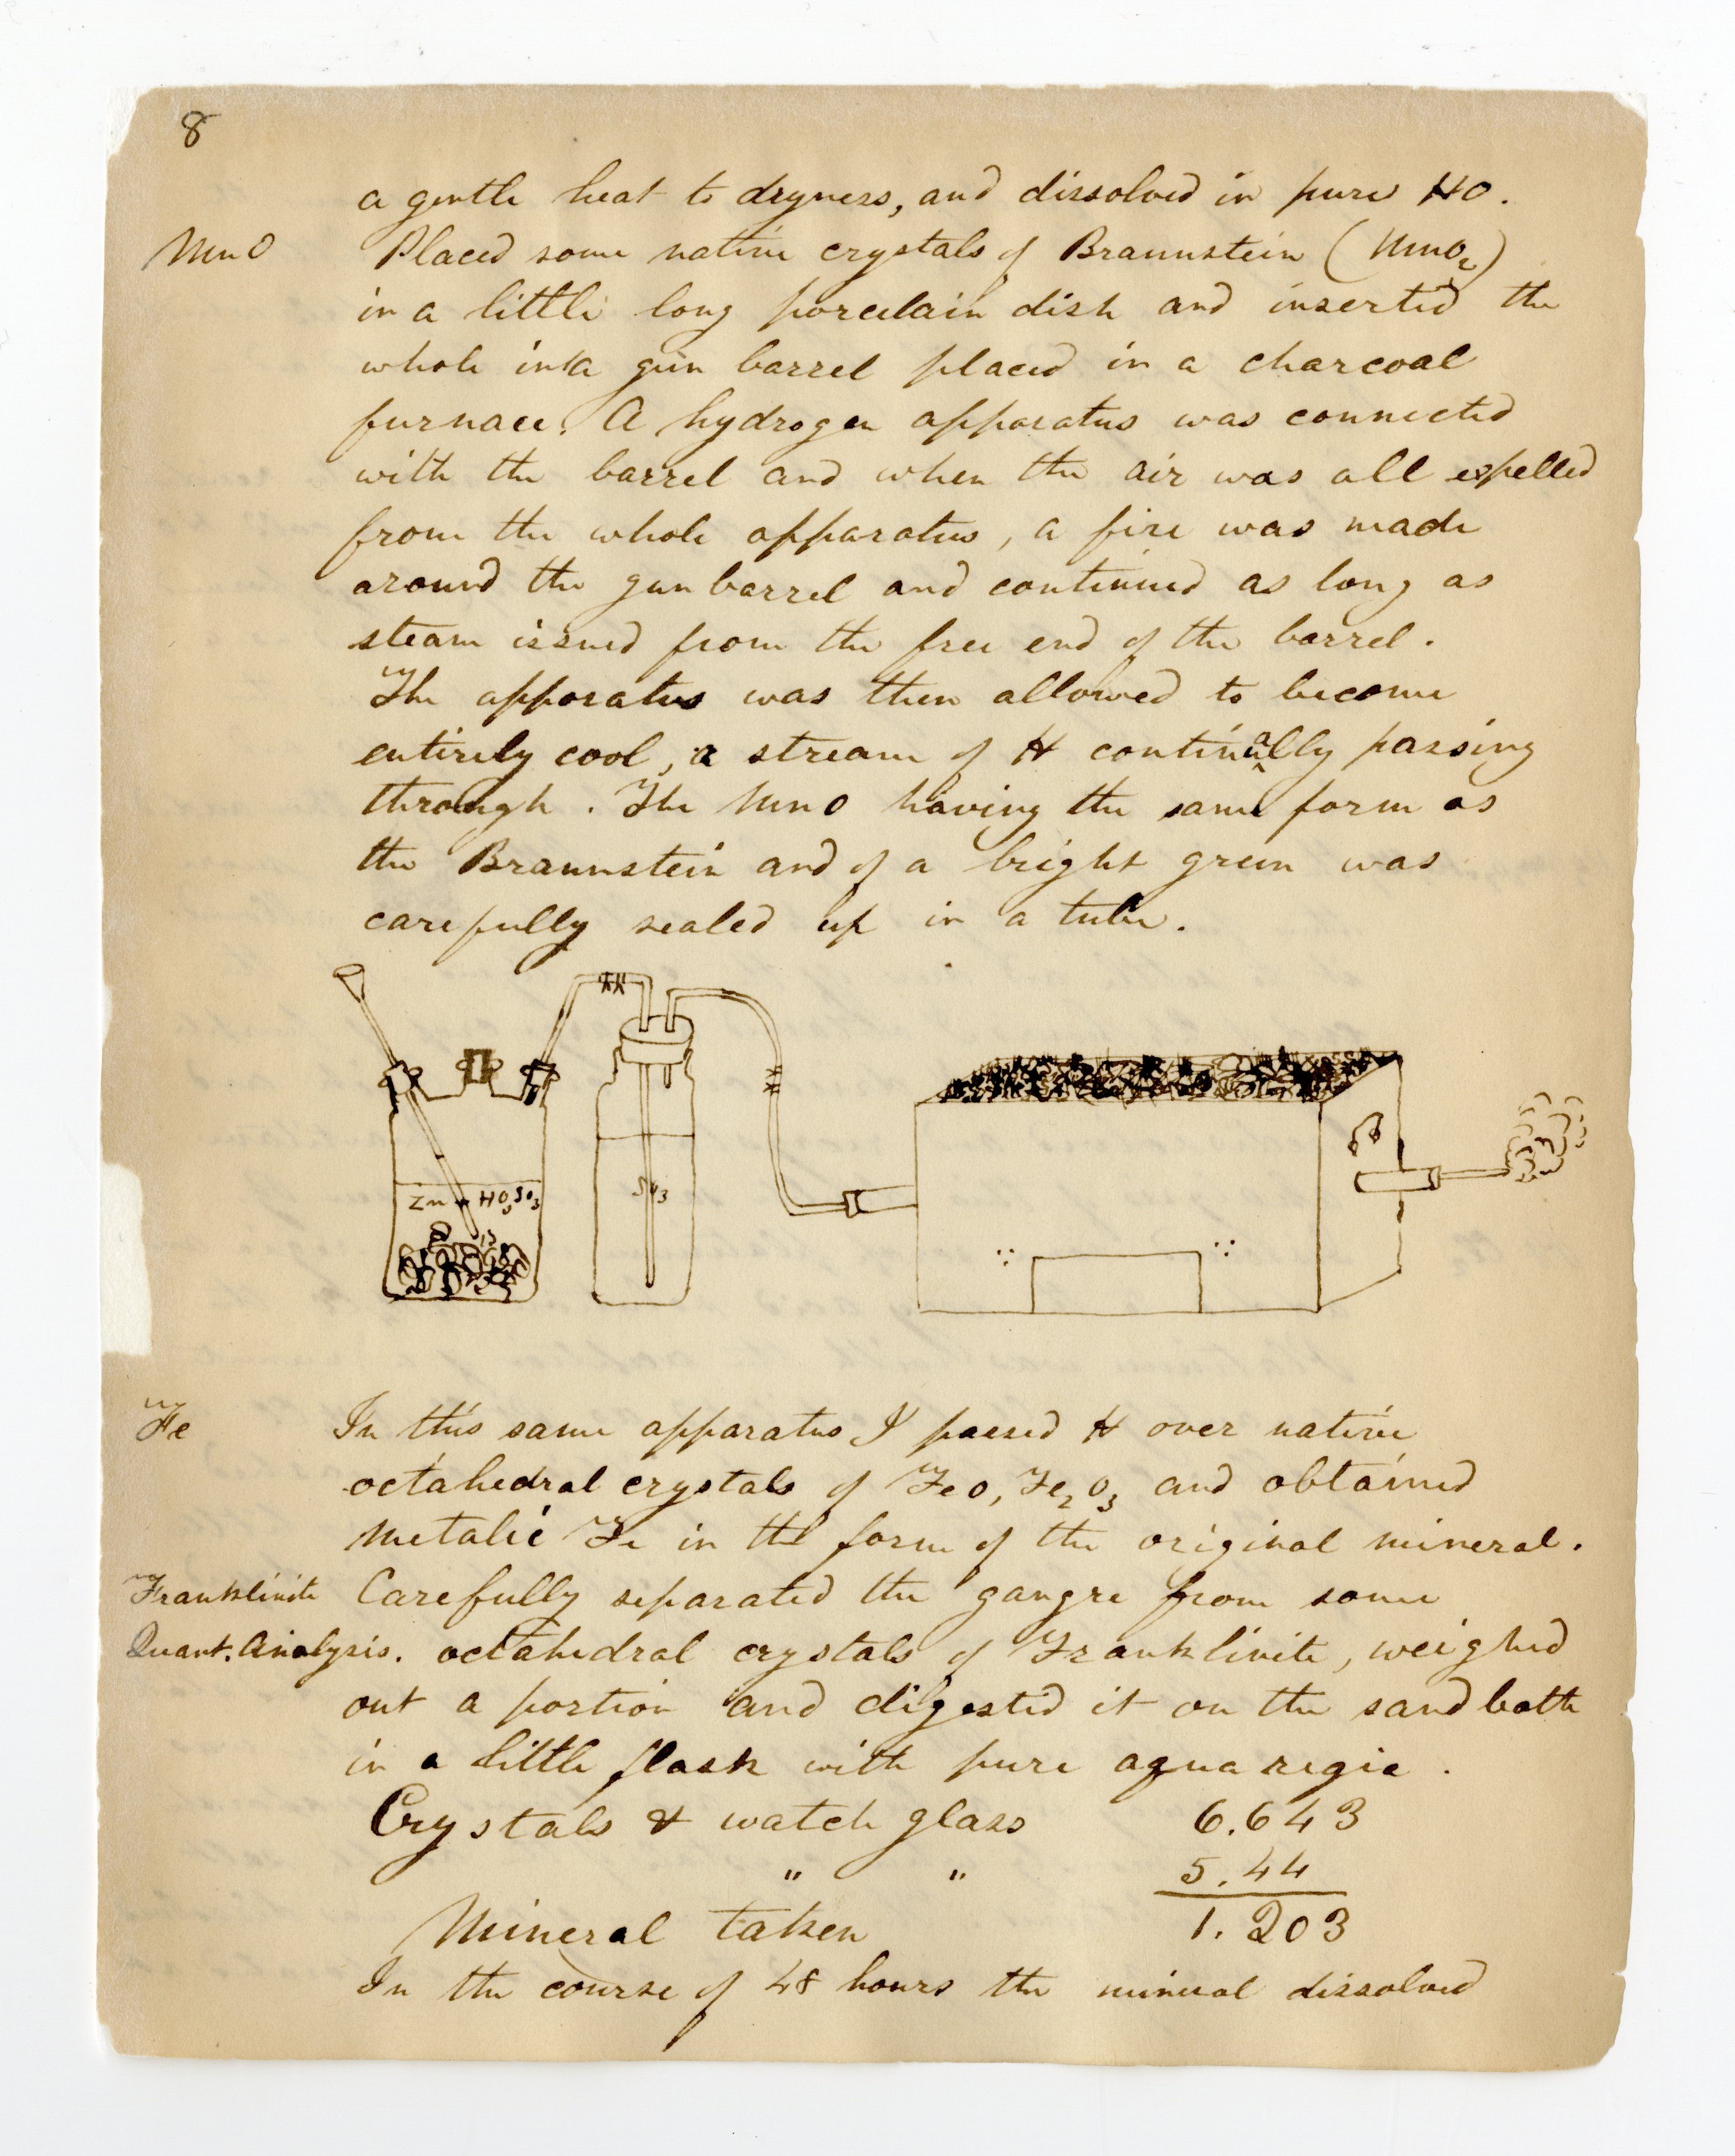 8
a gentle heat to dryness, and dissolved in pure HO.
MnO Placed some native crystals of Braunstein (MnO₂)
in a little long porcelain dish and inserted the
whole into a gun barrel placed in a charcoal
furnace. A hydrogen apparatus was connected
with the barrel and when the air was all expelled
from the whole apparatus, a fire was made
around the gun barrel and continued as long as
steam issued from the free end of the barrel.
The apparatus was then allowed to become
entirely cool, a stream of H continually passing
through. The MnO having the same form as
the Braunstein and of a bright green was
carefully sealed up in a tube.
Zn + HO,SO₃
SO₃
Fe In this same apparatus I passed H over native
octahedral crystals of FeO, Fe₂O₃ and obtained
metalic Fe in the form of the original mineral.
Franklinite Carefully separated the gangre from some
Quant. Analysis. octahedral crystals of Franklinite, weighed
out a portion and digested it on the sand bath
in a little flask with pure aqua regia.
Crystals & watch glass 6.643
" " 5.44
Mineral taken 1.203
In the course of 48 hours the mineral dissolved